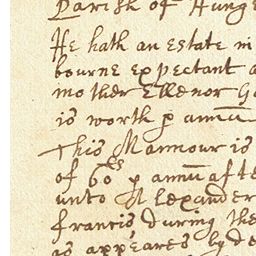 Parish of Hunge
He hath an Estate in
bourne expectant a
mother Ellenor G
is worth p annū
This Mannour is
of 60ˡˢ p annū afte
unto Alexander
francis during the
as appeares by de